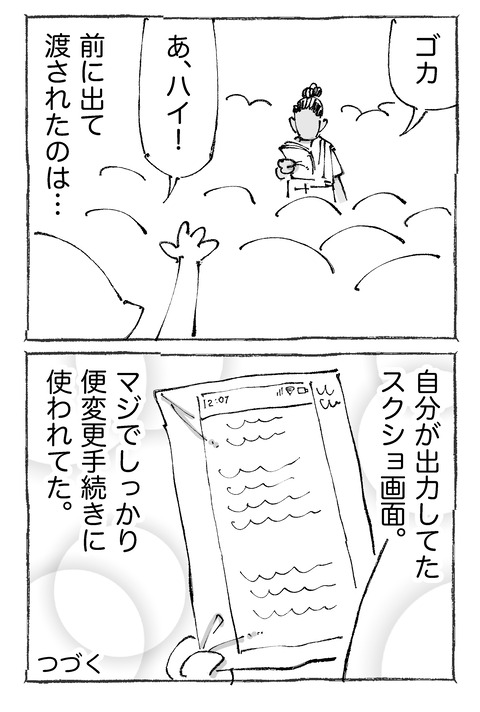 ゴカ
あ、ハイ！
前に出て
渡されたのは…
自分が出力してた
スクショ画面。
12:07
マジでしっかり
便変更手続きに
使われてた。
つづく